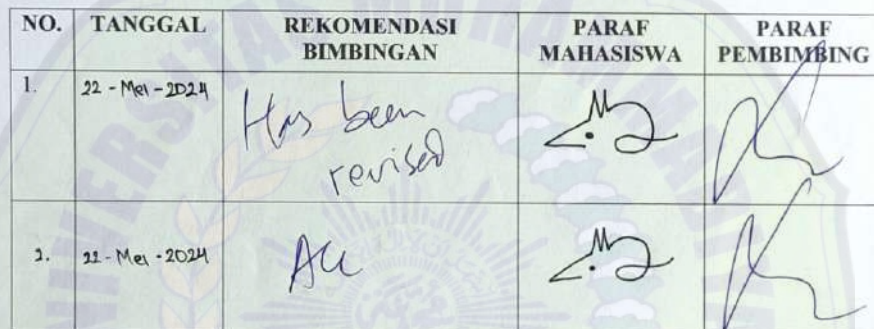 NO. TANGGAL REKOMENDASI BIMBINGAN PARAF MAHASISWA PARAF PEMBIMBING
1. 22 - Mei - 2024 Has been revised
2. 22 - Mei - 2024 Acc